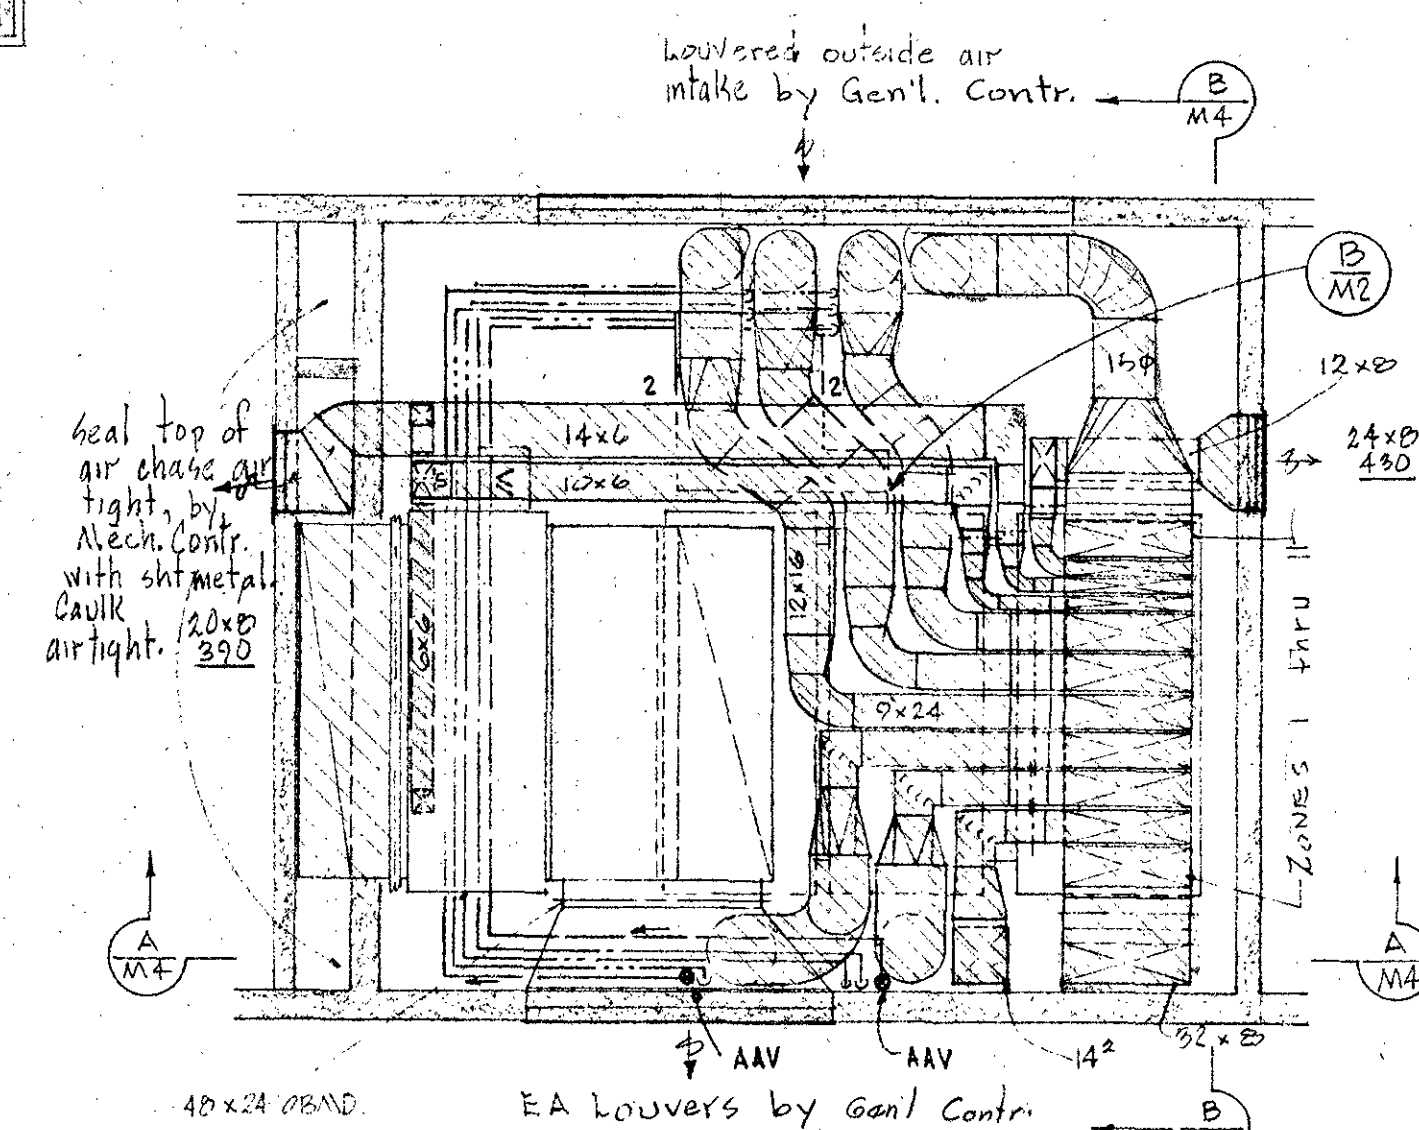 Louvered outside air
intake by Gen'l. Contr.
B
M4
B
M2
15φ
12x8
24x8
430
2
2
14x6
10x6
Seal top of
air chase air
tight, by
Mech. Contr.
with sht metal.
Caulk
airtight.
20x8
390
6x6
12x16
9x24
Zones 1 thru 11
A
M4
A
M4
AAV
AAV
14²
32x8
48x24 OBMD.
EA Louvers by Gen'l Contr.
B